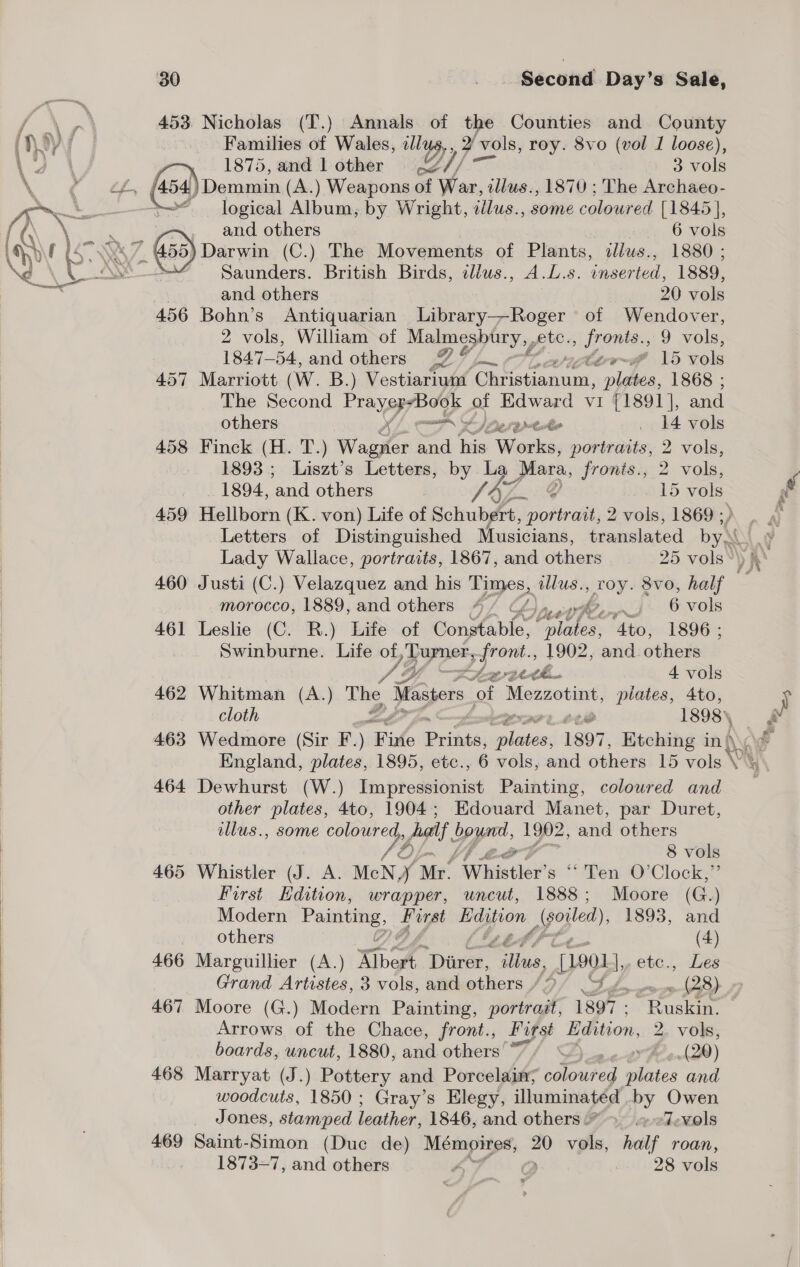 30 Second Day's Sale,
453 Nicholas (T.) Annals of the Counties and County
Families of Wales, illus., 2 vols, roy. 8vo (vol 1 loose),
1875, and 1 other 3 vols
454 Demmin (A.) Weapons of War, illus., 1870; The Archaeo-
logical Album, by Wright, illus., some coloured [1845],
and others 6 vols
455 Darwin (C.) The Movements of Plants, illus., 1880;
Saunders. British Birds, illus., A.L.s. inserted, 1889,
and others 20 vols
456 Bohn's Antiquarian Library—Roger of Wendover,
2 vols, William of Malmesbury, etc., fronts., 9 vols,
1847-54, and others 15 vols
457 Marriott (W. B.) Vestiarium Christianum, plates, 1868;
The Second Prayer-Book of Edward VI [1891], and
others 14 vols
458 Finck (H. T.) Wagner and his Works, portraits, 2 vols,
1893; Liszt's Letters, by La Mara, fronts., 2 vols,
1894, and others 15 vols
459 Hellborn (K. von) Life of Schubert, portrait, 2 vols, 1869;
Letters of Distinguished Musicians, translated by
Lady Wallace, portraits, 1867, and others 25 vols
460 Justi (C.) Velazquez and his Times, illus., roy. 8vo, half
morocco, 1889, and others 6 vols
461 Leslie (C. R.) Life of Constable, plates, 4to, 1896;
Swinburne. Life of Turner, front., 1902, and others
4 vols
462 Whitman (A.) The Masters of Mezzotint, plates, 4to,
cloth 1898
463 Wedmore (Sir F.) Fine Prints, plates, 1897, Etching in
England, plates, 1895, etc., 6 vols, and others 15 vols
464 Dewhurst (W.) Impressionist Painting, coloured and
other plates, 4to, 1904; Edouard Manet, par Duret,
illus., some coloured, half bound, 1902, and others
8 vols
465 Whistler (J. A. McN.) Mr. Whistler's "Ten O'Clock,"
First Edition, wrapper, uncut, 1888; Moore (G.)
Modern Painting, First Edition (soiled), 1893, and
others (4)
466 Marguillier (A.) Albert Dürer, illus, [1901], etc., Les
Grand Artistes, 3 vols, and others (28)
467 Moore (G.) Modern Painting, portrait, 1897; Ruskin.
Arrows of the Chace, front., First Edition, 2 vols,
boards, uncut, 1880, and others (20)
468 Marryat (J.) Pottery and Porcelain, coloured plates and
woodcuts, 1850; Gray's Elegy, illuminated by Owen
Jones, stamped leather, 1846, and others 7 vols
469 Saint-Simon (Duc de) Mémoires, 20 vols, half roan,
1873-7, and others 28 vols